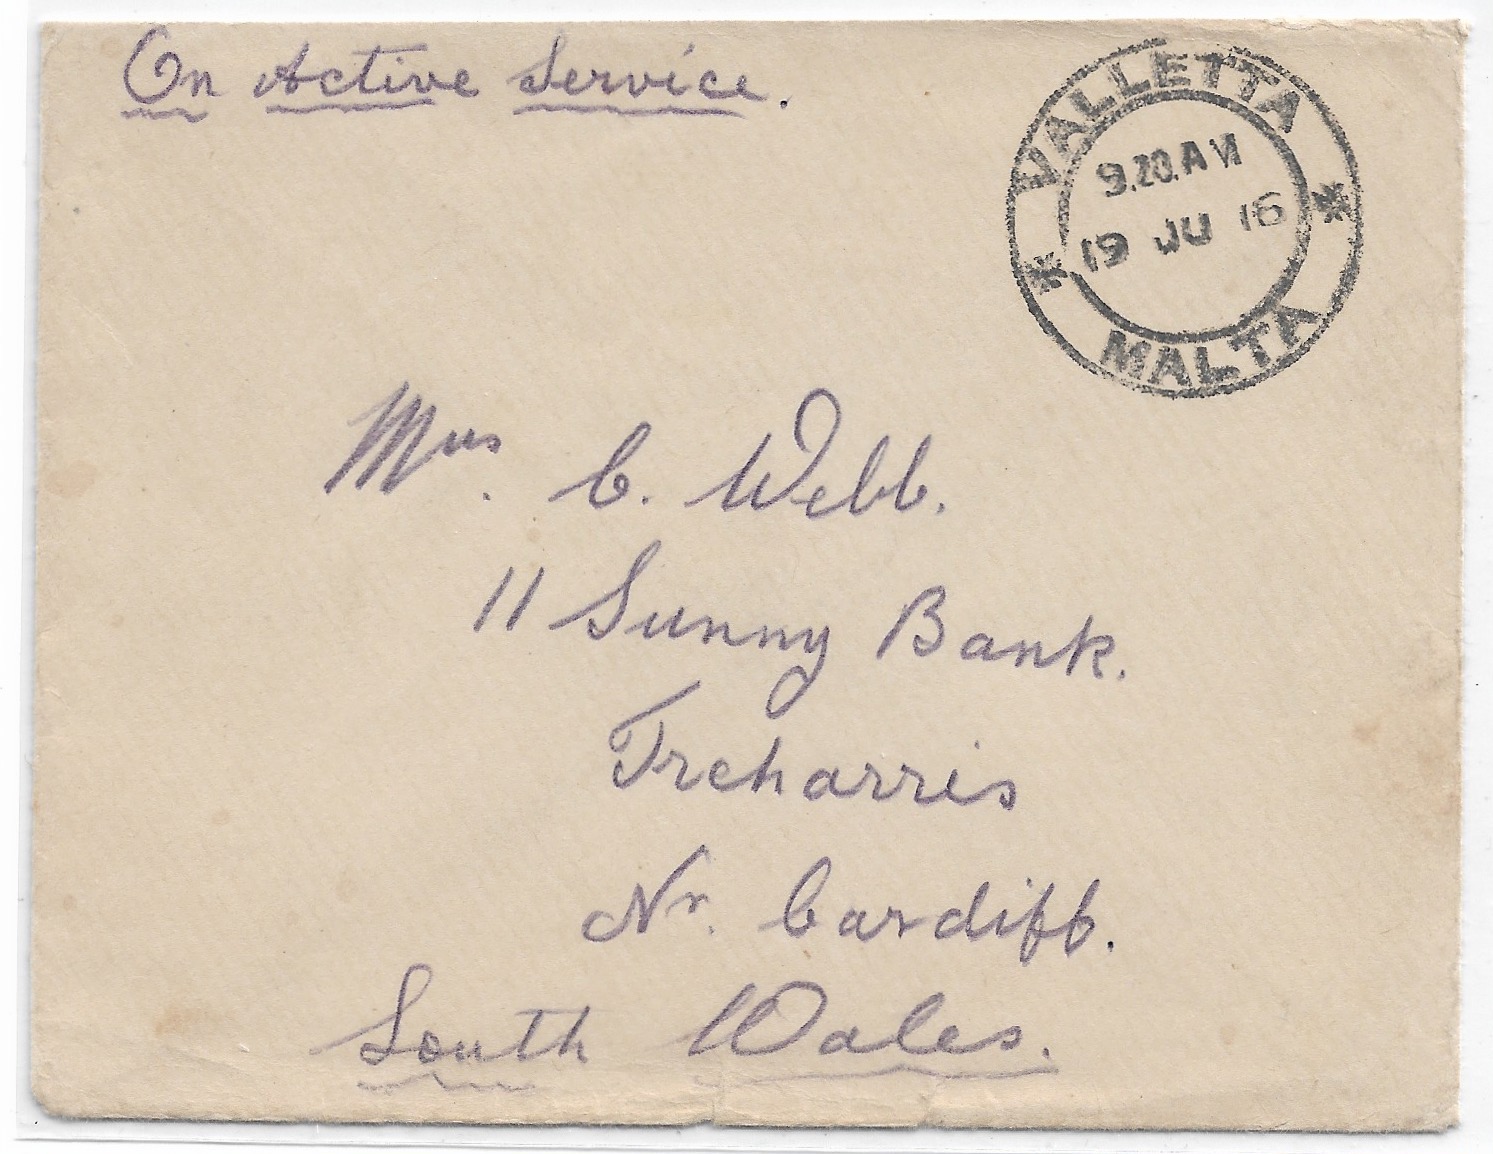 On Active Service.
VALLETTA
9.20.AM
19 JU 16
MALTA
Mrs. C. Webb.
11 Sunny Bank.
Treharris
Nr. Cardiff.
South Wales.